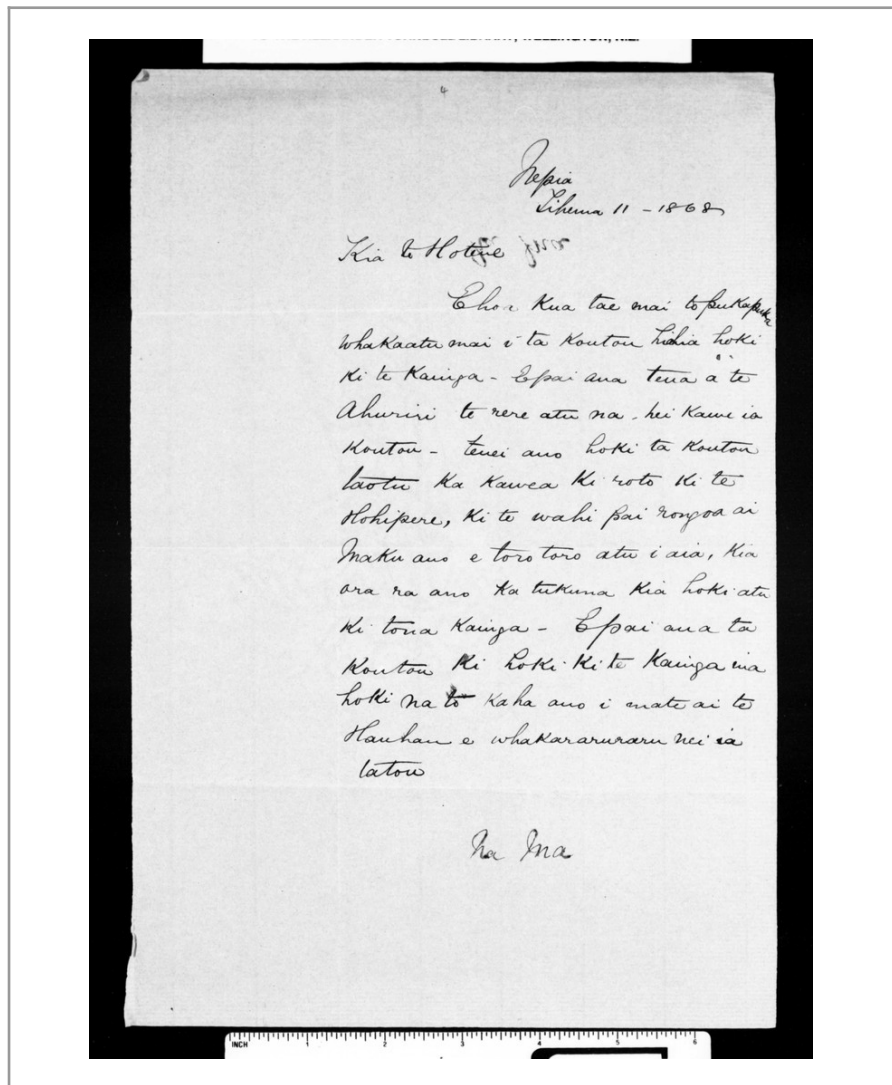 4
Nepia
Tihema 11 - 1868
Kia te Hotene
Ehoa Kua tae mai to pukapuka
whakaatu mai i ta Koutou hiahia hoki
Ki te Kainga - Epai ana tena a te
Ahuriri te rere atu na - hei Kawe ia
Koutou - tenei ano hoki ta Koutou
taotu Ka Kawea Ki roto Ki te
Hohipere, Ki te wahi pai rongoa ai
Maku ano e torotoro atu i aia, Kia
ora ra ano Ka tukuna Kia hoki atu
Ki tona Kainga - Epai ana ta
Koutou Ki hoki Ki te Kainga ina
hoki na to Kaha ano i mate ai te
Hauhau e whakararuraru nei ia
tatou
Na Ma
INCH 1 2 3 4 5 6